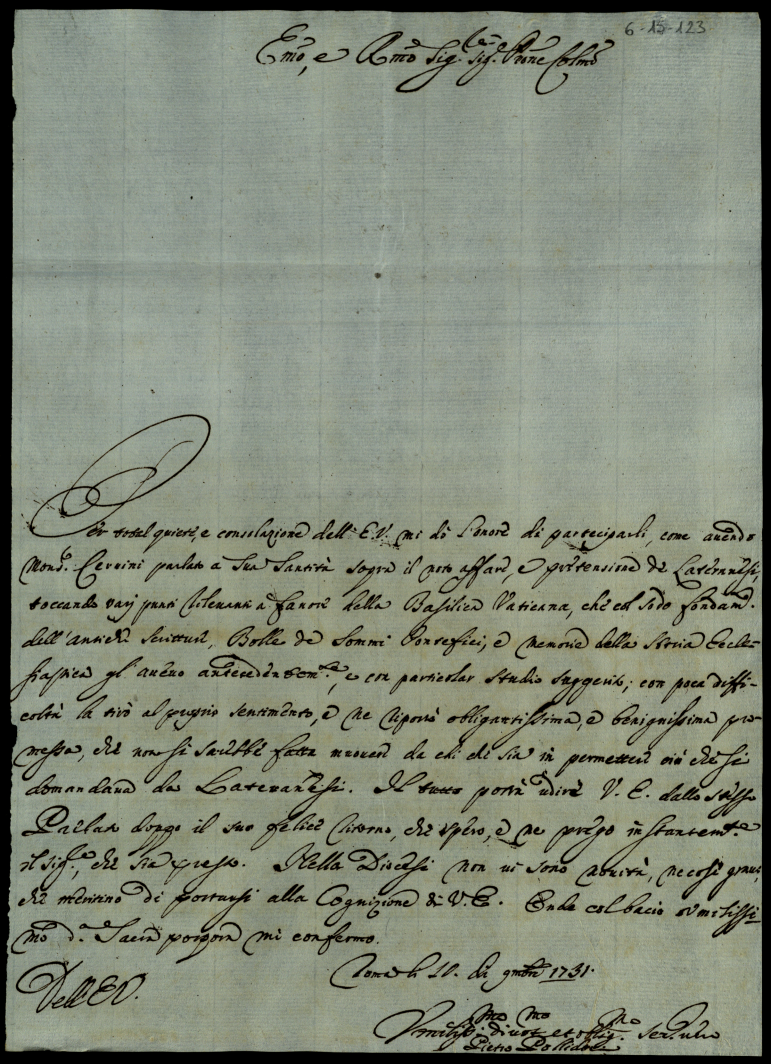 6-13-123
Emo, e Rmo Sig.re Sig.re Prone Colmo
Per total quiete, e consolazione dell'E.V. mi dò l'onore di partecipareli, come avendo
Mons.r Cervini parlato a Sua Santità sopra il noto affare, e pretensione de Lateranesi,
toccando varj punti rilevanti a favore della Basilica Vaticana, che col sodo fondam.
dell'antiche scritture, Bolle de Sommi Pontefici, e memorie della Storia Eccle-
siastica gl'avevo antecedentem.te, e con particolar studio suggerite; con poca diffi-
coltà la tirò al proprio sentimento, e ne riportò obligantissima, e benignissima pro-
messa, che non si sarebbe fatta muovere da chi che sia in permettere ciò che si
domandava da Lateranesi. Il tutto potrà udire V. E. dallo stesso
Prelato doppo il suo felice ritorno, che spero, e ne prego instantem.te
il Sig.re, che sia presto. Nella Diocesi non vi sono novità, ne cose gravi,
che meritino di portarsi alla Cognizione di V. E. Onde col bacio umilissi-
mo d.a Sacra porpora mi confermo.
Dell'E.V.
Roma li 10. di 9mbre 1731.
Umiliss.mo divot.mo et oblig.mo servitore
Pietro Pollidori